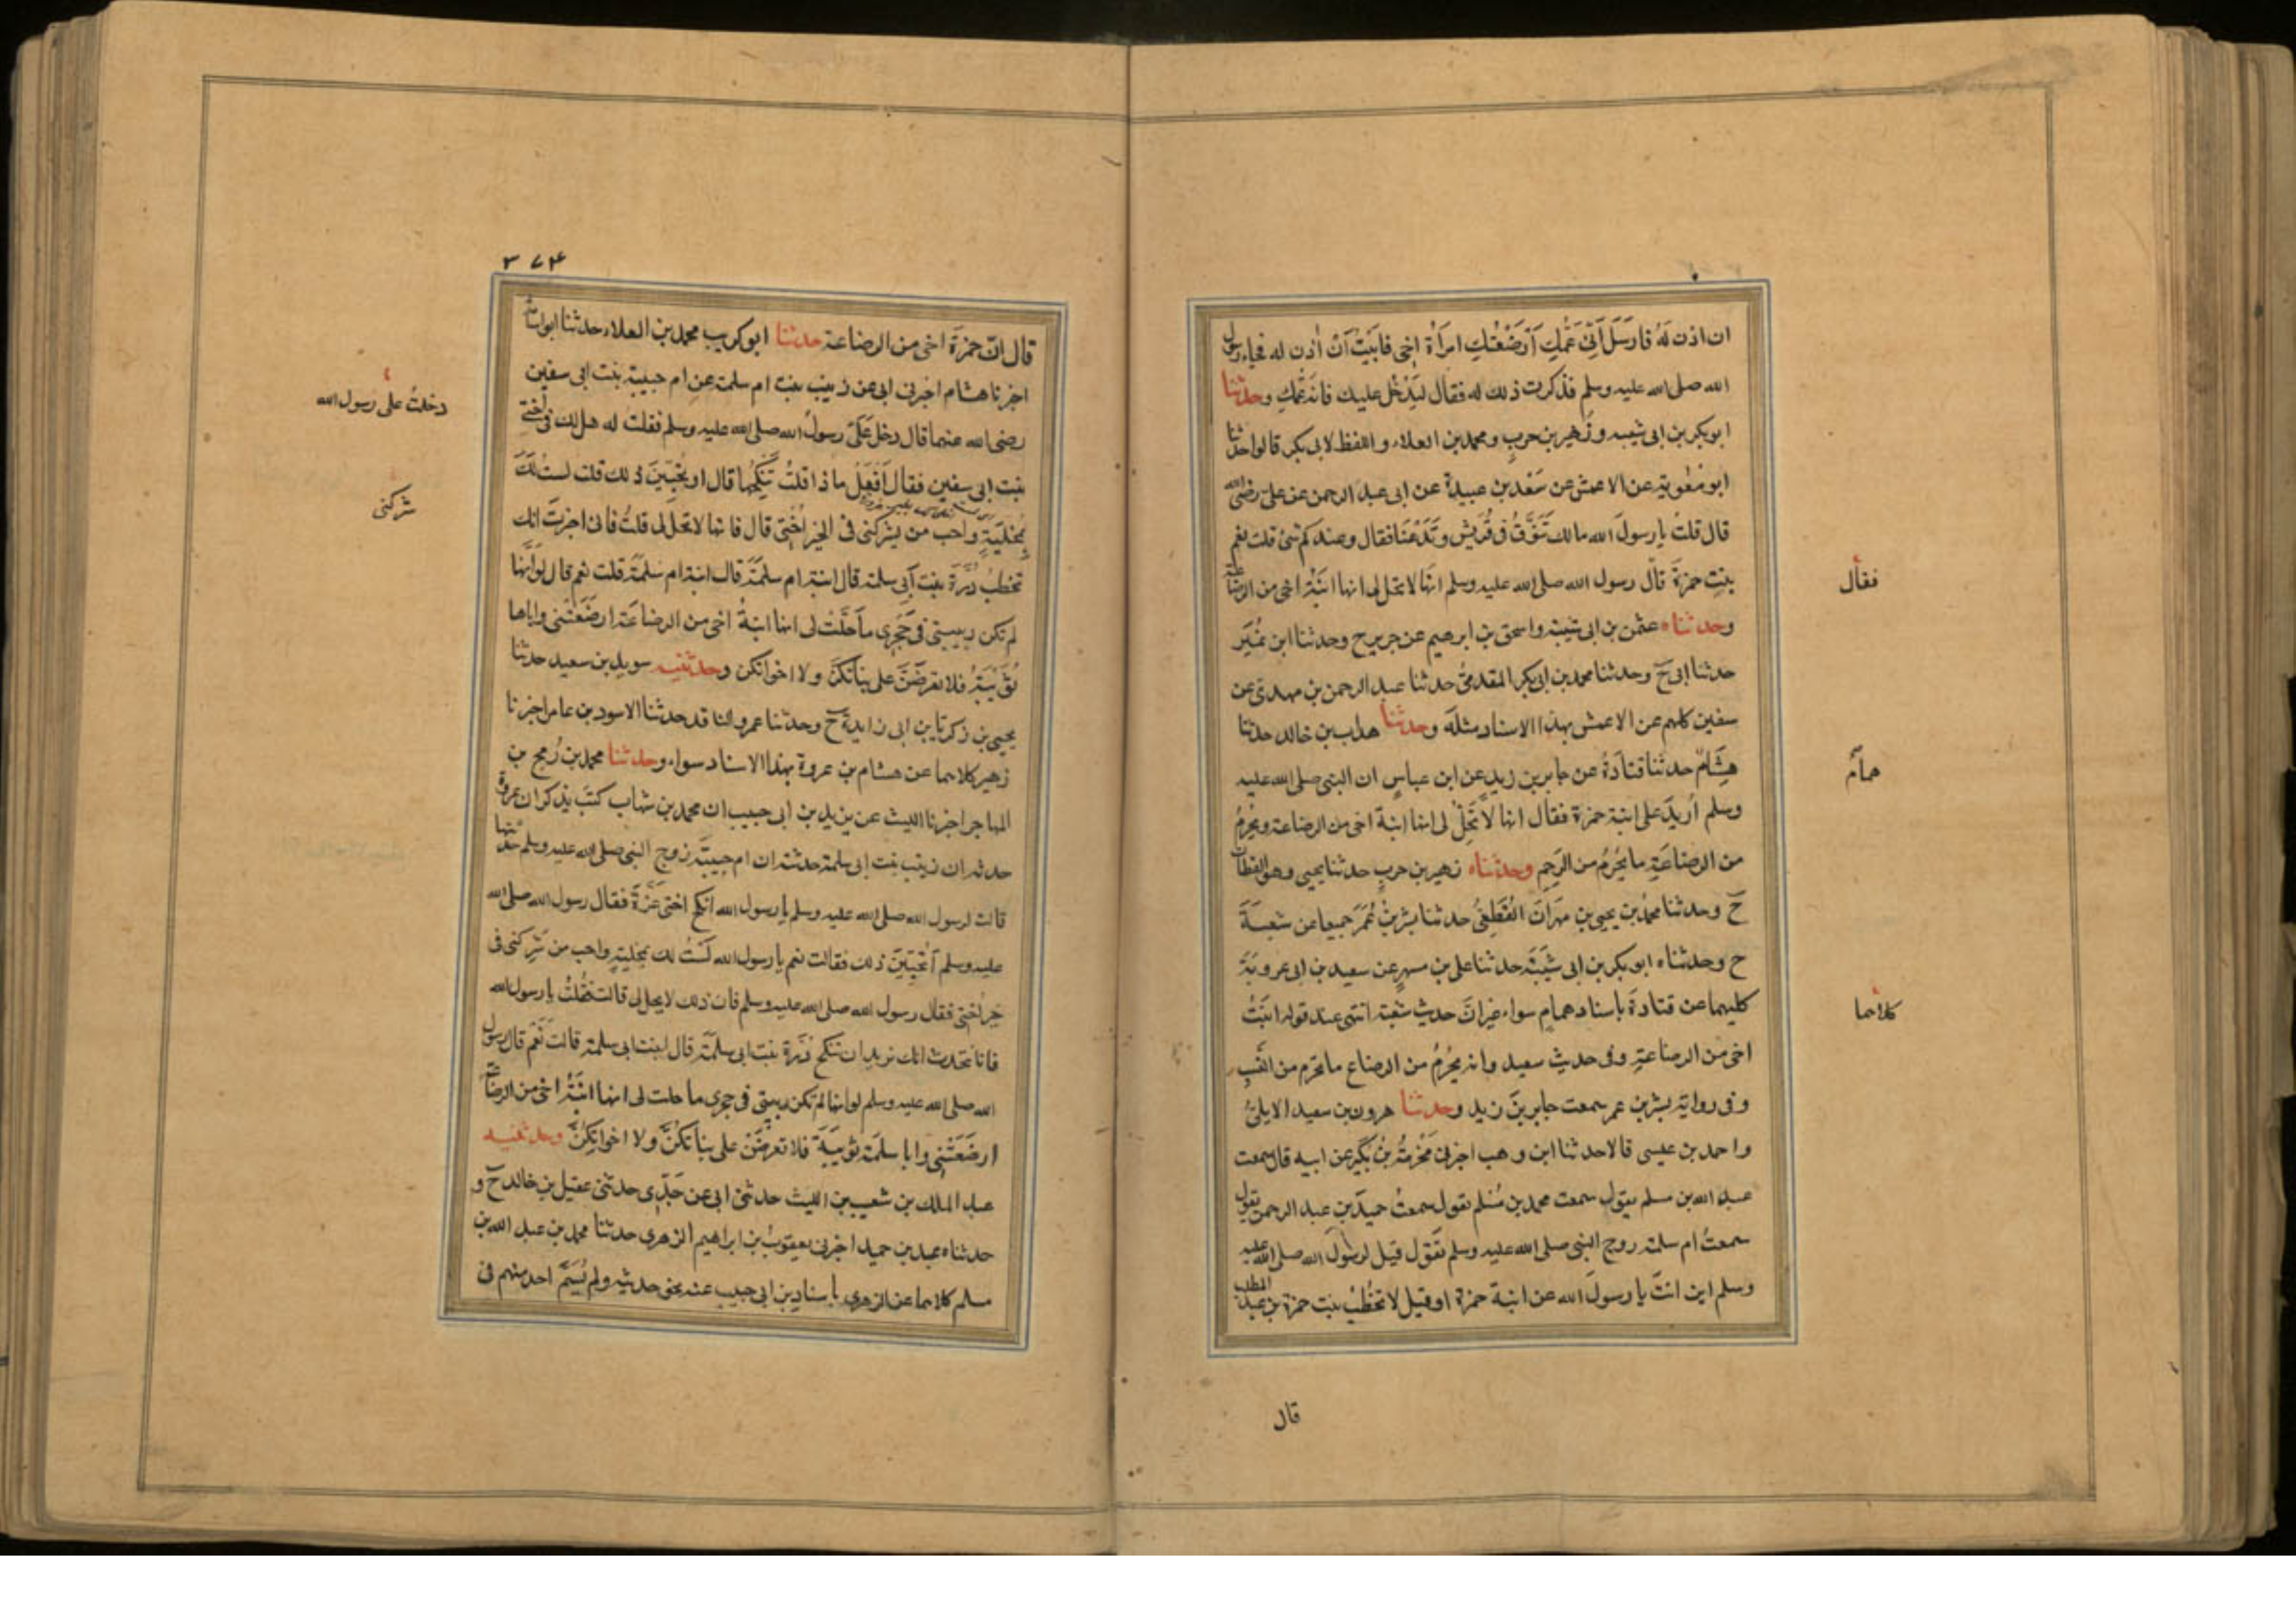 ان اذن لَهُ فارسَلَ اَنِّى عَمُّكِ اَرْضَعْتكِ امرَأة اخى فابَيْتُ اَنْ اٰذن له فجاء رسول
الله صلى الله عليه وسلم فذكرت ذلك له فقال ليَدْخُل عليك فانه عَمّكِ وحدثنا
ابوبكر بن ابى شيبه وزُهير بن حربٍ ومحمد بن العلاء واللفظ لابى بكر قالوا حدثنا
ابو معٰوية عن الاعمش عن سَعْد بن عبيدة عن ابى عبد الرحمن عن على رضى الله
قال قلتُ يا رسولَ الله مالك تَنَوَّقُ فى قُرَيْش وتَدَعُنَا فقال وعندكم شئ قلت نعم
بنتِ حمزةَ قال رسول الله صلى الله عليه وسلم انها لا تحل لى انها ابنَةُ اخى من الرضاعة
فقال
وحدثناه عثمن بن ابى شيبة واسحق بن ابرهيم عن جرير ح وحدثنا ابن نُمَير
حدثنا ابى ح وحدثنا محمد بن ابى بكر المقدمىُّ حدثنا عبد الرحمن بن مهدى عن
سفين كلهم عن الاعمش بهذا الاسناد مثلَه وحدثنا هداب بن خالد حدثنا
هِشَامٌ حدثنا قتادَةُ عن جابر بن زيد عن ابن عباسٍ ان النبى صلى الله عليه
همامٌ
وسلم اُريدَ على ابنة حمزة فقال انها لا تَحِلّ لى انها ابنة اخى من الرضاعة ويحرُمُ
من الرضاعَةِ ما يَحْرُمُ من الرَّحِم وحدثناه زهير بن حربٍ حدثنا يحيى وهو القطان
ح وحدثنا محمدُ بن يحيى بنِ مهرَانَ القُطَعِىُّ حدثنا بِشْر بْنُ عُمَرَ جميعا عن شعبةَ
ح وحدثناه ابو بكر بن ابى شَيْبَةَ حدثنا على بن مسهرٍ عن سعيد بن ابى عروبَةَ
كليهما عن قتادةَ باسناد همامٍ سواء غيرانّ حديث شعبة انتهى عند قوله ابنَتُ
كلاهما
اخى من الرضاعَةِ وفى حديث سعيد وانه يَحْرُمُ من الرضاع ما يَحرم من النَّسبِ
وفى رواية بِشْر بن عمر سمعت جابر بنَ زيد وحدثنا هرون بن سعيد الايلىُّ
واحمد بن عيسى قالا حدثنا ابن وهب اخبرنى مَخْرمَةُ بْنُ بُكَير عن ابيه قال سمعت
عبد الله بن مسلم يقول سمعت محمد بن مُسْلم يقول سمعتُ حميدَ بن عبد الرحمن يقول
سمعتُ ام سلمة زوج النبى صلى الله عليه وسلم تَقول قيل لرسُولَ الله صلى الله عليه
وسلم اين انتَ يا رسولَ الله عن ابنة حمزة او قيل لا تخطُبُ بنت حمزة بن عبد المطلب
قال
٣٧٤
قال انّ حمزَةَ اخى من الرضاعة حدثنا ابو كريب محمد بن العلاء حدثنا ابو اسامة
اخبرنا هشام اخبرنى ابى عن زينب بنت ام سلمة عن ام حبيبة بنت ابى سفين
رضى الله عنهما قال دخل عَلَىّ رسولُ الله صلى الله عليه وسلم فقلت له هل لك فى اُختى
دخلتُ على رسول الله
بنت ابى سفين فقال اَفْعَلُ ماذا قلتُ تَنْكِحُها قال او تُحِبّينَ ذلك قلت لستُ لَكَ
بمُخْلِيَةٍ واحب من يشركنى فى الخير اُخْتِى قال فانها لا تحل لى قلتُ فانى اخبرتَ انك
شركنى
تخطبُ دُرَّةَ بنت اَبى سلمة قال ابنة ام سلَمَةَ قال ابنة ام سَلمَةَ قلت نعم قال لو انَّها
لم تكن ربيبتى فى حِجْرى ما حَلَّتْ لى انها ابنةُ اخى من الرضاعَة ارضَعَتْنى واباها
ثُوَيْبَةُ فلا تعرضْنَ على بنَاتكنَّ ولا اخواتكن وحدثنيه سويد بن سعيد حدثنا
يحيى بن زكريا بن ابى زايدة ح وحدثنا عمرو الناقد حدثنا الاسود بن عامر اخبرنا
زهير كلاهما عن هشام بن عروة بهذا الاسناد سواء وحدثنا محمد بن رُمح بن
المهاجر اخبرنا الليث عن يزيد بن ابى حبيب ان محمد بن شهاب كتَبَ يذكر ان عروة
حدثه ان زينب بنت ابى سلمة حدثته ان ام حبيبَة زوج النبى صلى الله عليه وسلم حدثتها
قالت لرسول الله صلى الله عليه وسلم يا رسول الله انكح اختى عَزَّةَ فقال رسول الله صلى الله
عليه وسلم اَتُحِبّينَ ذلك فقالت نعم يا رسول الله لَسْتُ لك بمُخلِيَةٍ واحب من شَرِكنى فى
خيرٍ اُختى فقال رسول الله صلى الله عليه وسلم فان ذلك لا يحل لى قالت فَقُلْتُ يا رسول الله
فانا نتحدث انك تريد ان تنكح دُرَّة بنت ابى سلَمَةَ قال ابنت ابى سلمة قالت نَعَم قال رسول
الله صلى الله عليه وسلم لو انها لم تكن ربيبتى فى حجرى ما حلت لى انها ابْنَةُ اخى من الرضاعة
ارضَعَتْنِى وابا سلَمَة ثوَيْبَةُ فلا تعرضْنَ على بناتكُنَّ ولا اخواتكُنَّ وحدثنيه
عبد الملك بن شعيب بن الليث حدثنى ابى عن جَدِّى حدثنى عقيل بن خالد ح و
حدثناه عبد بن حميد اخبرنى يعقوبُ بن ابراهيم الزهرى حدثنا محمد بن عبد الله بن
مسلم كلاهما عن الزهرى باسناد بن ابى حبيب عنه نحو حديثه ولم يُسَمِّ احد منهم فى